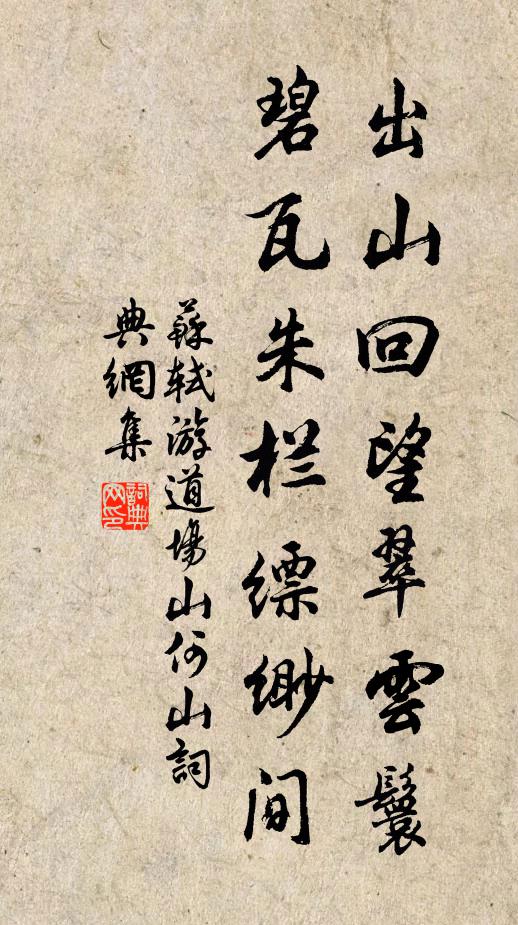 出山回望翠雲鬟
碧瓦朱栏缥缈间
蘇軾游道場山何山詞
典網集
詞典网印